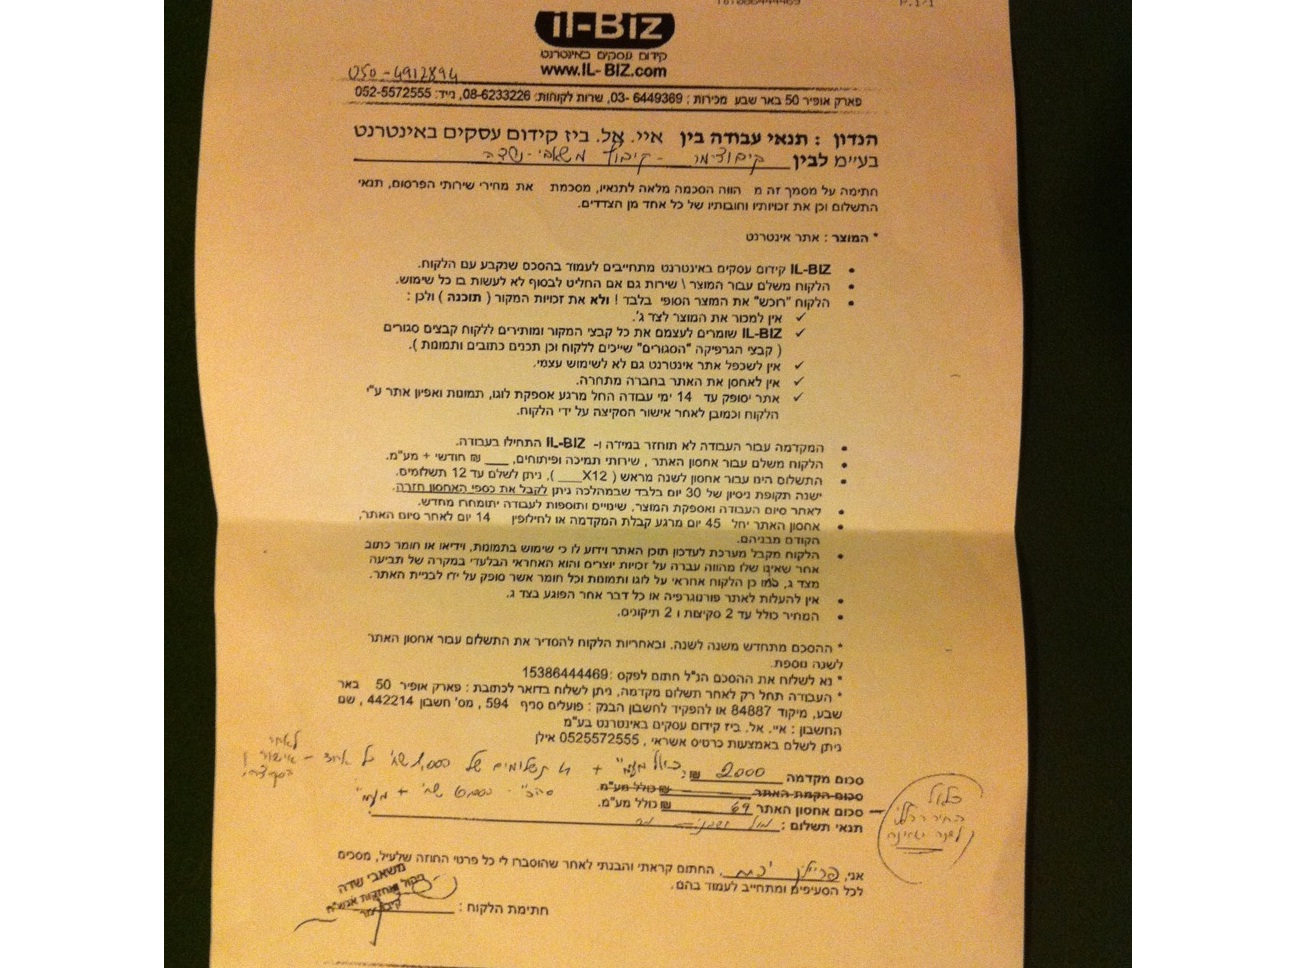 P.1/1
il-Biz
קידום עסקים באינטרנט
www.IL-BIZ.com
050-4912894
פארק אופיר 50 באר שבע מכירות : 03-6449369, שרות לקוחות: 08-6233226, נייד: 052-5572555
הנדון : תנאי עבודה בין איי. אל. ביז קידום עסקים באינטרנט
בע״מ לבין קיבוצימר - קיבוץ משאבי-שדה
חתימה על מסמך זה מ הווה הסכמה מלאה לתנאיו, מסכמת את מחירי שירותי הפרסום, תנאי
התשלום וכן את זכויותיו וחובותיו של כל אחד מן הצדדים.
* המוצר : אתר אינטרנט
• IL-BIZ קידום עסקים באינטרנט מתחייבים לעמוד בהסכם שנקבע עם הלקוח.
• הלקוח משלם עבור המוצר \ שירות גם אם החליט לבסוף לא לעשות בו כל שימוש.
• הלקוח "רוכש" את המוצר הסופי בלבד ! ולא את זכויות המקור ( תוכנה ) ולכן :
✓ אין למכור את המוצר לצד ג'.
✓ IL-BIZ שומרים לעצמם את כל קבצי המקור ומותירים ללקוח קבצים סגורים
( קבצי הגרפיקה "הסגורים" שייכים ללקוח וכן תכנים כתובים ותמונות ).
✓ אין לשכפל אתר אינטרנט גם לא לשימוש עצמי.
✓ אין לאחסן את האתר בחברה מתחרה.
✓ אתר יסופק עד 14 ימי עבודה החל מרגע אספקת לוגו, תמונות ואפיון אתר ע"י
הלקוח וכמובן לאחר אישור הסקיצה על ידי הלקוח.
• המקדמה עבור העבודה לא תוחזר במידה ו- IL-BIZ התחילו בעבודה.
• הלקוח משלם עבור אחסון האתר , שירותי תמיכה ופיתוחים, ___ ₪ חודשי + מע"מ.
• התשלום הינו עבור אחסון לשנה מראש ( X12___ ), ניתן לשלם עד 12 תשלומים.
ישנה תקופת ניסיון של 30 יום בלבד שבמהלכה ניתן לקבל את כספי האחסון חזרה.
• לאחר סיום העבודה ואספקת המוצר, שינויים ותוספות לעבודה יתומחרו מחדש.
• אחסון האתר יחל 45 יום מרגע קבלת המקדמה או לחילופין 14 יום לאחר סיום האתר,
הקודם מבניהם.
• הלקוח מקבל מערכת לעדכון תוכן האתר וידוע לו כי שימוש בתמונות, וידיאו או חומר כתוב
אחר שאינו שלו מהווה עברה על זכויות יוצרים והוא האחראי הבלעדי במקרה של תביעה
מצד ג, כמו כן הלקוח אחראי על לוגו ותמונות וכל חומר אשר סופק על ידו לבניית האתר.
• אין להעלות לאתר פורנוגרפיה או כל דבר אחר הפוגע בצד ג.
• המחיר כולל עד 2 סקיצות ו 2 תיקונים.
* ההסכם מתחדש משנה לשנה. ובאחריות הלקוח להסדיר את התשלום עבור אחסון האתר
לשנה נוספת.
* נא לשלוח את ההסכם הנ"ל חתום לפקס : 15386444469
* העבודה תחל רק לאחר תשלום מקדמה, ניתן לשלוח בדואר לכתובת : פארק אופיר 50 באר
שבע, מיקוד 84887 או להפקיד לחשבון הבנק : פועלים סניף 594 , מס' חשבון 442214 , שם
החשבון : איי. אל. ביז קידום עסקים באינטרנט בע"מ
ניתן לשלם באמצעות כרטיס אשראי , 0525572555 אילן
סכום מקדמה 2000 ₪ כולל מע"מ + 4 תשלומים של 1,000 שח' כל אחד - לאחר אישור הסקיצה!
סכום הקמת האתר ₪ כולל מע"מ. סה"כ - 6,000 שח' + מע"מ
סכום אחסון האתר 69 ₪ כולל מע"מ.
תנאי תשלום :
אני, , החתום קראתי והבנתי לאחר שהוסברו לי כל פרטי החוזה שלעיל, מסכים
לכל הסעיפים ומתחייב לעמוד בהם.
חתימת הלקוח :
משאבי שדה